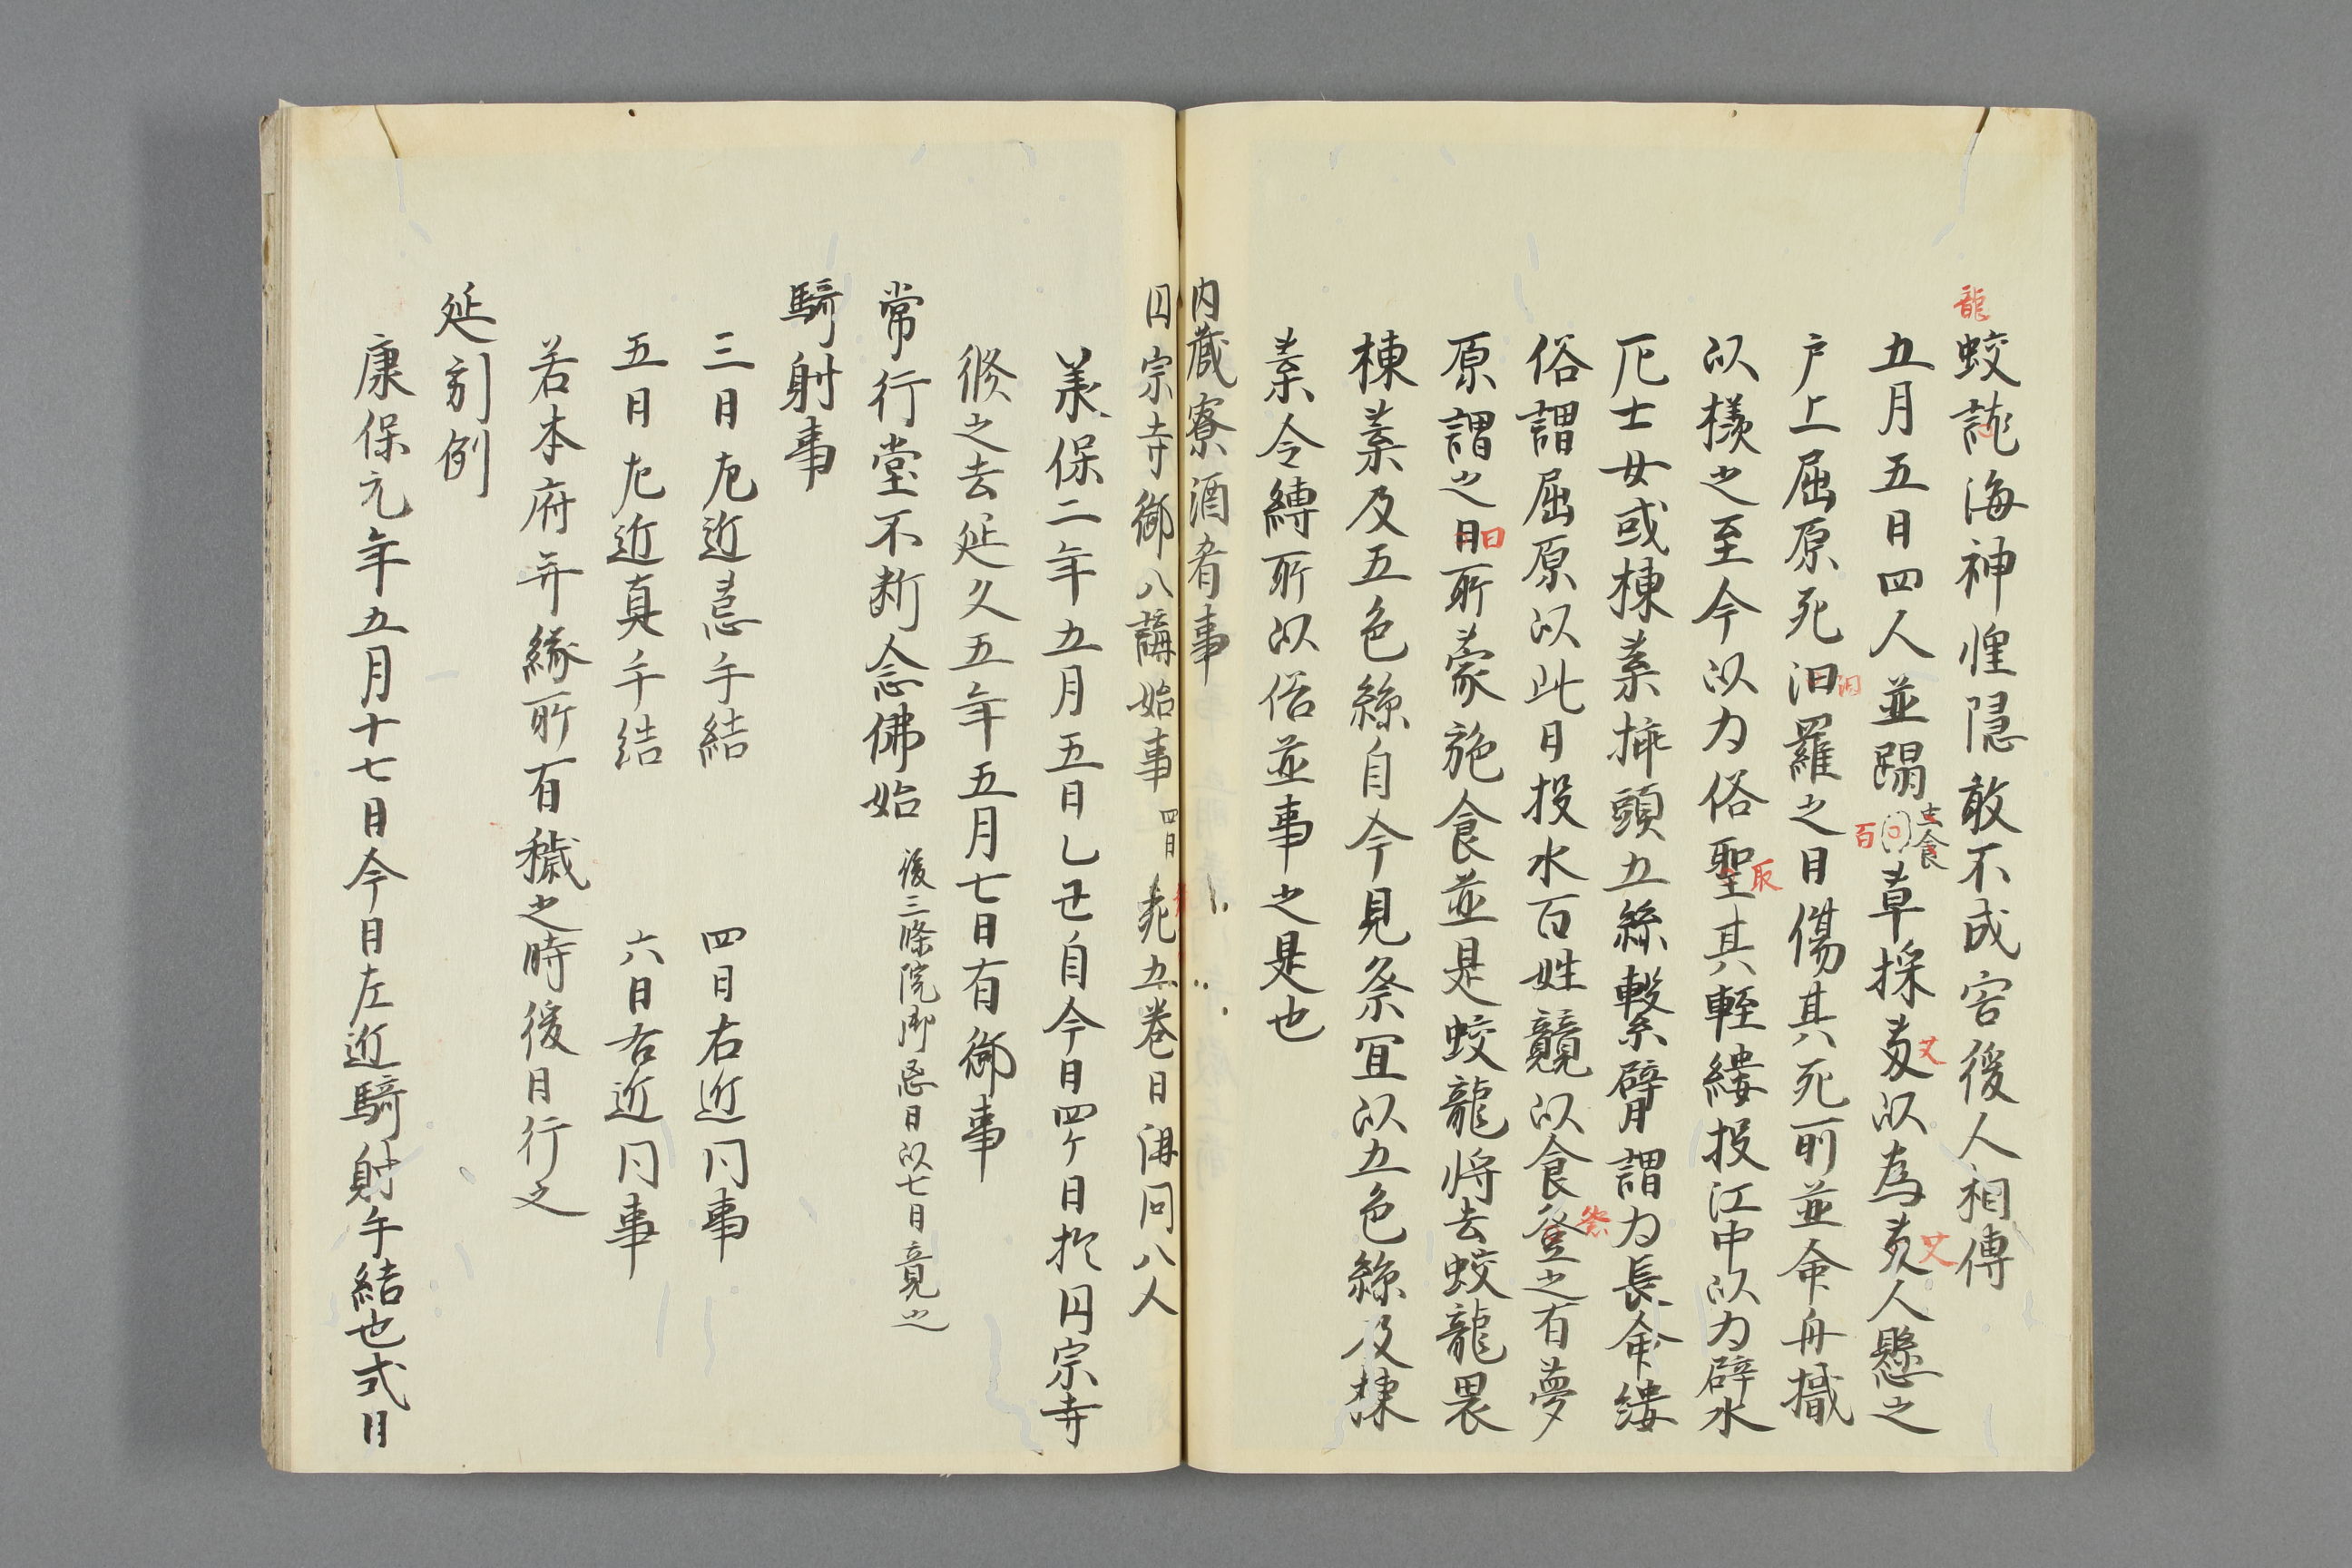 龍
蛟龍海神惶隠敢不成害後人相傳
五月五日四人並蹋百草採艾以為艾人懸之
戸上屈原死汨羅之日傷其死所並命舟檝
以檥之至今以為俗聖取其輕縷投江中以為辟水
厄士女或楝葉揷頭五絲繫臂謂為長命縷
俗謂屈原以此日投水百姓競以食祭之有夢
原謂之曰所蒙施食並是蛟龍将去蛟龍畏
楝葉及五色絲自今見祭宜以五色絲及楝
葉令縛所以俗並事之是也
内蔵寮酒肴事
円宗寺御八講始事 四日 五巻日講同八人
承保二年五月五日乙丑自今日四ケ日於円宗寺
修之去延久五年五月七日有御事
常行堂不断念佛始 後三條院御忌日以七日竟之
騎射事
三日左近荒手結 四日右近同事
五日左近真手結 六日右近同事
若本府并縁所有穢之時後日行之
延引例
康保元年五月十七日今日左近騎射手結也式日